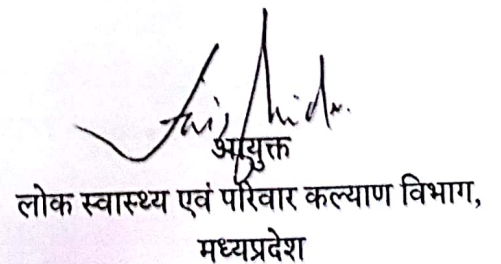 आयुक्त
लोक स्वास्थ्य एवं परिवार कल्याण विभाग,
मध्यप्रदेश